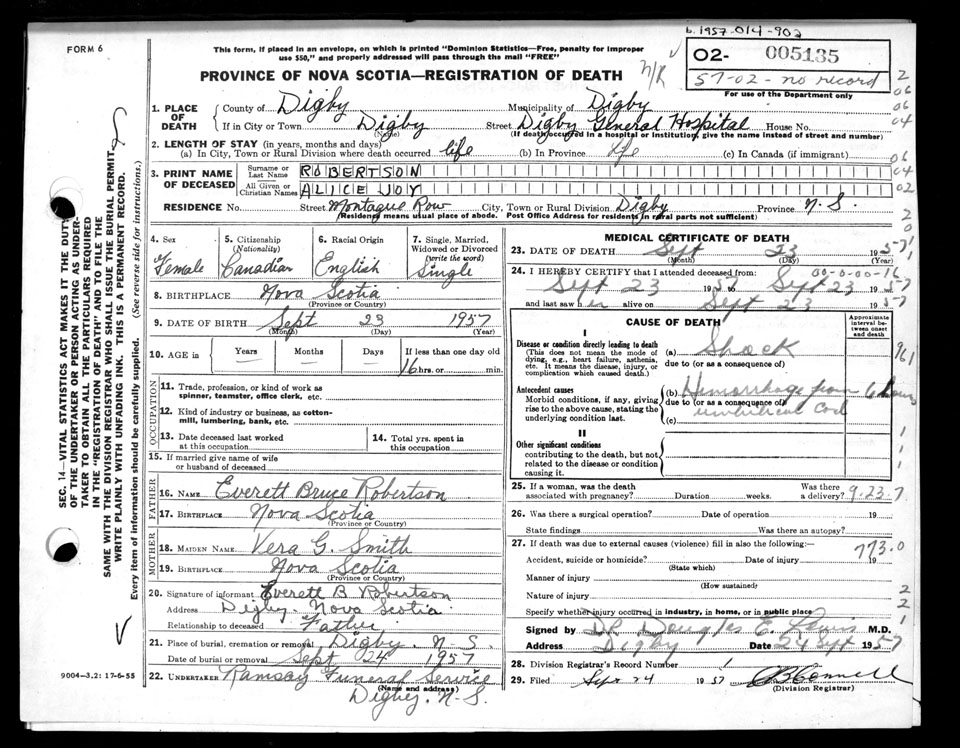 b. 1957-014-902
FORM 6
This form, if placed in an envelope, on which is printed "Dominion Statistics—Free, penalty for improper
use $50," and properly addressed will pass through the mail "FREE"
N/R
02- 005135
57-02- no record
For use of the Department only
PROVINCE OF NOVA SCOTIA—REGISTRATION OF DEATH
1. PLACE OF DEATH County of Digby Municipality of Digby
If in City or Town Digby Street Digby General Hospital House No.
(Name) (If death occurred in a hospital or institution, give the name instead of street and number)
2. LENGTH OF STAY (in years, months and days)
(a) In City, Town or Rural Division where death occurred life (b) In Province life (c) In Canada (if immigrant)
3. PRINT NAME OF DECEASED Surname or Last Name ROBERTSON
All Given or Christian Names ALICE JOY
RESIDENCE No. Street Montague Row City, Town or Rural Division Digby Province N.S.
(Residency means usual place of abode. Post Office Address for residents in rural parts not sufficient)
4. Sex Female
5. Citizenship (Nationality) Canadian
6. Racial Origin English
7. Single, Married, Widowed or Divorced (write the word) Single
8. BIRTHPLACE Nova Scotia
(Province or Country)
9. DATE OF BIRTH Sept 23 1957
(Month) (Day) (Year)
10. AGE in Years Months Days If less than one day old
16 hrs. or min.
OCCUPATION
11. Trade, profession, or kind of work as
spinner, teamster, office clerk, etc.
12. Kind of industry or business, as cotton-
mill, lumbering, bank, etc.
13. Date deceased last worked
at this occupation
14. Total yrs. spent in
this occupation
15. If married give name of wife
or husband of deceased
FATHER
16. NAME Everett Bruce Robertson
17. BIRTHPLACE Nova Scotia
(Province or Country)
MOTHER
18. MAIDEN NAME Vera G. Smith
19. BIRTHPLACE Nova Scotia
(Province or Country)
20. Signature of informant Everett B Robertson
Address Digby. Nova Scotia
Relationship to deceased Father
21. Place of burial, cremation or removal Digby. N.S.
Date of burial or removal Sept 24 1957
22. UNDERTAKER Ramsay Funeral Service
(Name and address)
Digby, N-S.
MEDICAL CERTIFICATE OF DEATH
23. DATE OF DEATH Sept 23 1957
(Month) (Day) (Year)
00-0-00-16
24. I HEREBY CERTIFY that I attended deceased from:
Sept 23 1957 to Sept 23 1957
and last saw her alive on Sept 23 1957
CAUSE OF DEATH
Approximate interval between onset and death
I
Disease or condition directly leading to death
(This does not mean the mode of
dying, e.g., heart failure, asthenia,
etc. It means the disease, injury, or
complication which caused death.)
(a) Shock
due to (or as consequence of)
Antecedent causes
Morbid conditions, if any, giving
rise to the above cause, stating the
underlying condition last.
(b) Hemorrhage from 6 hours
due to (or as consequence of)
umbilical cord
(c)
II
Other significant conditions
contributing to the death, but not
related to the disease or condition
causing it.
25. If a woman, was the death
associated with pregnancy? Duration weeks. Was there
a delivery? 9-23-7
26. Was there a surgical operation? Date of operation 19
State findings Was there an autopsy?
27. If death was due to external causes (violence) fill in also the following:—
773.0
Accident, suicide or homicide? Date of injury 19
(State which)
Manner of injury
(How sustained)
Nature of injury
Specify whether injury occurred in industry, in home, or in public place
Signed by DR Douglas E. Lewis M.D.
Address Digby Date 24 Sept 1957
28. Division Registrar's Record Number 1
29. Filed Sept 24 1957
(Division Registrar)
SEC. 14—VITAL STATISTICS ACT MAKES IT THE DUTY
OF THE UNDERTAKER OR PERSON ACTING AS UNDER-
TAKER TO OBTAIN ALL THE PARTICULARS REQUIRED
IN THE "REGISTRATION OF DEATH" AND TO FILE THE
SAME WITH THE DIVISION REGISTRAR WHO SHALL ISSUE THE BURIAL PERMIT.
WRITE PLAINLY WITH UNFADING INK. THIS IS A PERMANENT RECORD.
Every item of information should be carefully supplied. (See reverse side for instructions.)
9004—3.2: 17-6-55
2
06
06
04
06
04
02
2
0
1
961
1
1
1
2
2
1